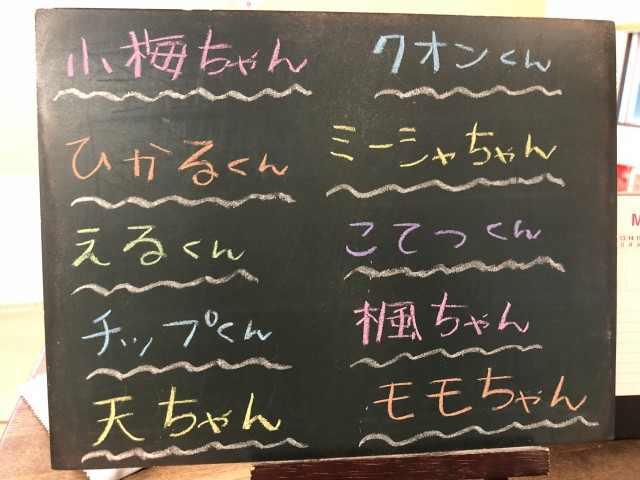 小梅ちゃん
クオンくん
ひかるくん
ミーシャちゃん
えるくん
こてつくん
チップくん
楓ちゃん
天ちゃん
モモちゃん